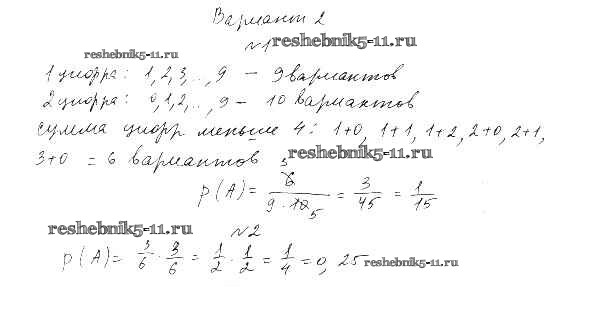 Вариант 2
№1 reshebnik5-11.ru
reshebnik5-11.ru
1 цифра: 1, 2, 3, .., 9 – 9 вариантов
2 цифра: 0, 1, 2, .., 9 – 10 вариантов
сумма цифр меньше 4: 1+0, 1+1, 1+2, 2+0, 2+1,
3+0 = 6 вариантов
reshebnik5-11.ru
p(A) = 6 3 / 9·10 5 = 3/45 = 1/15
reshebnik5-11.ru
№2
p(A) = 3/6 · 3/6 = 1/2 · 1/2 = 1/4 = 0,25
reshebnik5-11.ru